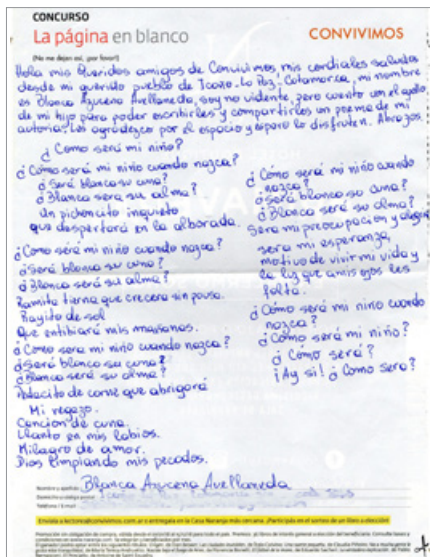 CONCURSO
La página en blanco
CONVIVIMOS
(No me dejen así, ¡por favor!)
Hola mis Queridos amigos de Convivimos mis cordiales saludos
desde mi querido pueblo de Icaño. La Paz, Catamarca, mi nombre
es Blanca Azucena Avellaneda, soy no vidente, pero cuento con el apoyo
de mi hijo para poder escribirles y compartirles un poema de mi
autoria. Les agradezco por el espacio y espero lo disfruten. Abrazos.
¿Como será mi niño?
¿Cómo será mi niño cuando nazca?
¿Será blanca su cuna?
¿Blanca sera su alma?
Un pichoncito inquieto
que despertará en la alborada.
¿Como será mi niño cuando nazca?
¿Será blanca su cuna?
¿Blanca será su alma?
Ramita tierna que crecera sin pausa.
Rayito de sol
Que entibiará mis mañanas.
¿Como sera mi niño cuando nazca?
¿Será blanca su cuna?
¿Blanca será su alma?
Pedacito de carne que abrigará
Mi regazo.
Cancion de cuna.
Llanto en mis labios.
Milagro de amor.
Dios limpiando mis pecados.
¿Cómo será mi niño cuando
nazca?
¿Será blanca su cuna?
¿Blanca será su alma?
Sera mi preocupación y
sera mi esperanza,
motivo de vivir mi vida y
la luz que a mis ojos les
falta.
¿Cómo será mi nino cuando
nazca?
¿Cómo será mi niño?
¿Cómo será?
¡Ay si! ¿Como sera?
Nombre y apellido
Blanca Azucena Avellaneda
Domicilio y código postal
Teléfono / E-mail
Envíala a lectores@convivimos.com.ar o entregala en la Casa Naranja más cercana. ¡Participás en el sorteo de un libro a elección!